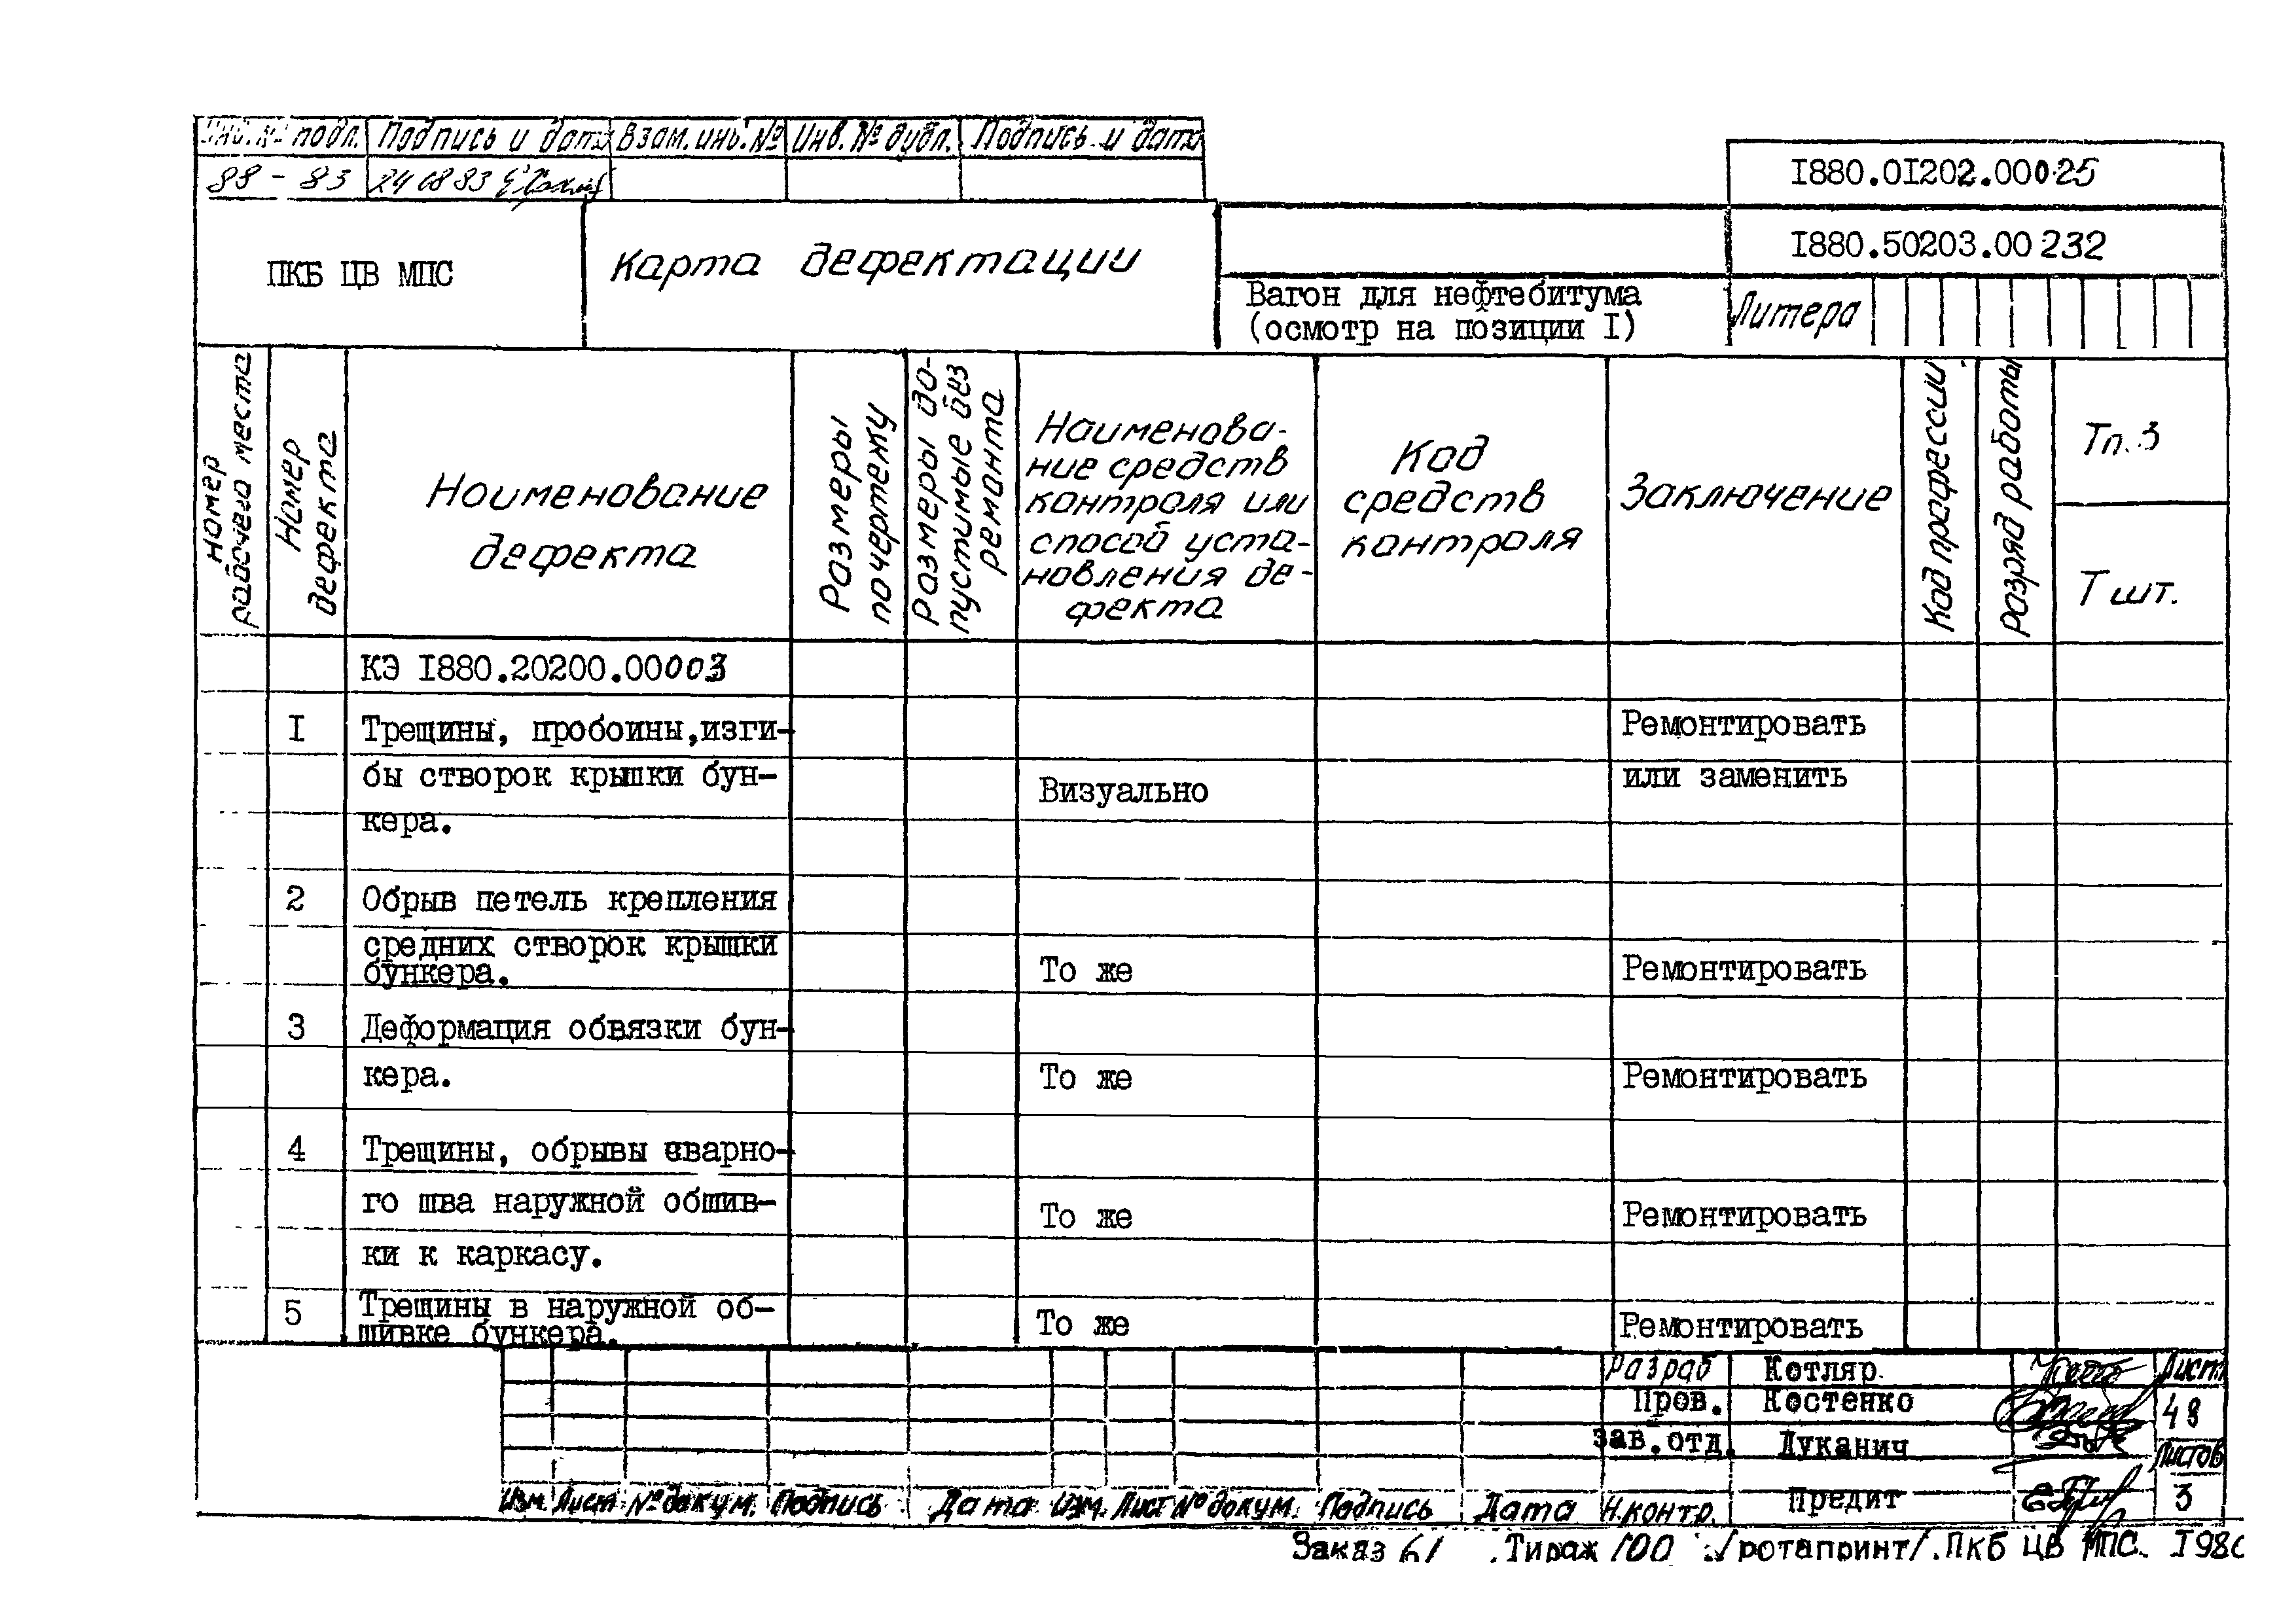 Инв. № подл. Подпись и дата Взам. инв. № Инв. № дубл. Подпись и дата
88 - 83
I880.0I202.00025
I880.50203.00232
ПКБ ЦВ МПС
Карта дефектации
Вагон для нефтебитума
(осмотр на позиции I)
Литера
Номер
рабочего места
Номер
дефекта
Наименование
дефекта
Размеры
по чертежу
Размеры до-
пустимые без
ремонта
Наименова-
ние средств
контроля или
способ уста-
новления де-
фекта
Код
средств
контроля
Заключение
Код профессии
Разряд работы
Тп.з
Т шт.
КЭ I880.20200.00003
I Трещины, пробоины,изги- Ремонтировать
бы створок крышки бун- Визуально или заменить
кера.
2 Обрыв петель крепления
средних створок крышки
бункера. То же Ремонтировать
3 Деформация обвязки бун-
кера. То же Ремонтировать
4 Трещины, обрывы сварно-
го шва наружной обшив- То же Ремонтировать
ки к каркасу.
5 Трещины в наружной об- То же Ремонтировать
шивке бункера.
Разраб Котляр. Лист
Пров. Костенко 48
зав.отд. Луканич Листов
Изм. Лист № докум. Подпись Дата Изм. Лист № докум. Подпись Дата Н.контр. Предит 3
Заказ 61 .Тираж 100 /ротапринт/.ПКБ ЦВ МПС. I98